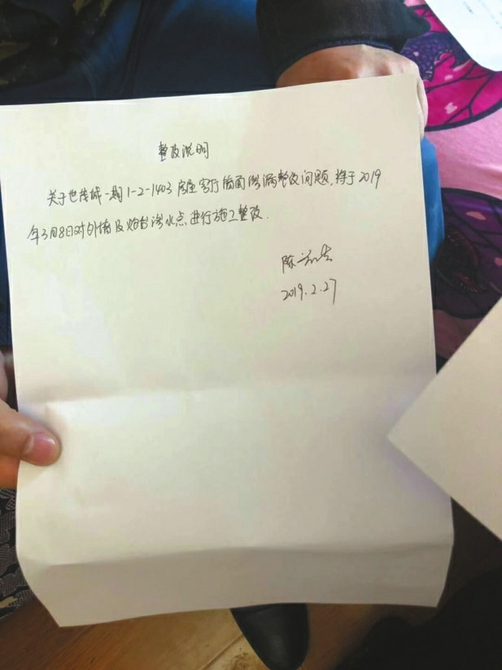 整改说明
关于世茂城一期1-2-1403房屋客厅顶面渗漏整改问题,将于2019
年3月8日对外墙及炮台渗水点进行施工整改.
陈
2019.2.27